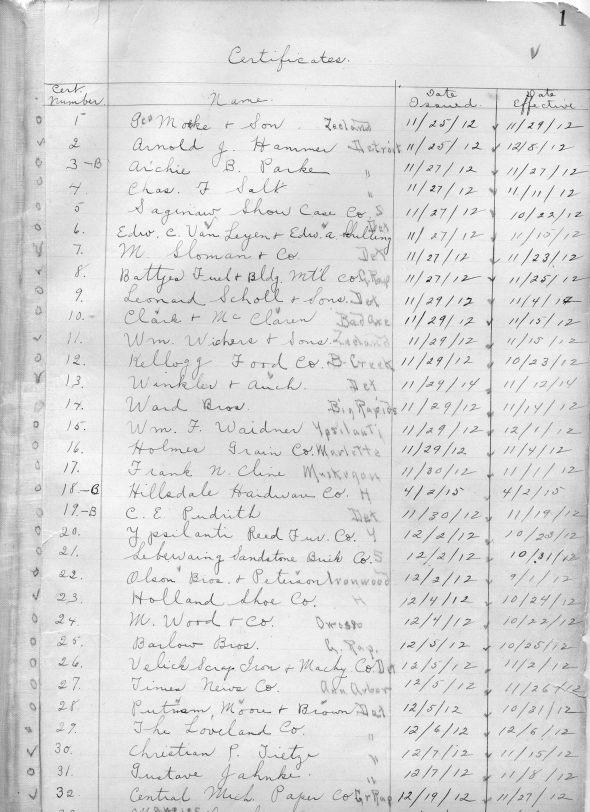 1
Certificates.
Cert. Number Name. Date Issued. Date Effective
1 Geo Moeke & Son Zeeland 11/25/12 11/29/12
2 Arnold J. Hammer Detroit 11/25/12 12/8/12
3-B Archie B. Parke " 11/27/12 11/27/12
4. Chas. F Salt " 11/27/12 11/11/12
5 Saginaw Show Case Co. S 11/27/12 10/22/12
6. Edw. C. Van Leyen & Edw. A. Schilling Det 11/27/12 11/15/12
7. M. Sloman & Co. Det 11/27/12 11/23/12
8. Battjes Fuel & Bldg. Mtl Co. G. Rap 11/27/12 11/25/12
9. Leonard Scholl & Sons. Det 11/29/12 11/4/14
10.- Clark & McClaren Bad Axe 11/29/12 11/15/12
11. Wm. Wichers & Sons. Zeeland 11/29/12 11/15/12
12. Kellogg Food Co. B. Creek 11/29/12 10/23/12
13. Winkler & Auch. Det 11/29/14 11/12/14
14. Ward Bros. Big Rapids 11/29/12 11/14/12
15. Wm. F. Waidner Ypsilanti 11/29/12 12/1/12
16. Holmes Grain Co. Marlotte 11/29/12 11/4/12
17. Frank N. Cline Muskegon 11/30/12 11/1/12
18.-B Hillsdale Hardware Co. H 4/2/15 4/2/15
19.-B C. E. Pudrith Det 11/30/12 11/19/12
20. Ypsilanti Reed Fur. Co. Y 12/2/12 10/23/12
21. Sebewaing Sandstone Brick Co. S 12/2/12 10/31/12
22. Olson Bros. & Peterson Ironwood 12/2/12 9/1/12
23. Holland Shoe Co. H 12/4/12 10/24/12
24. M. Wood & Co. Owosso 12/4/12 10/22/12
25. Barlow Bros. G. Rap. 12/5/12 10/25/12
26. Velick Scrap Iron & Machy Co. Det 12/5/12 11/2/12
27. Times News Co. Ann Arbor 12/5/12 11/26/12
28. Putnam, Moore & Brown Det 12/5/12 10/31/12
29. The Loveland Co. " 12/6/12 12/6/12
30. Christian P. Tietze " 12/7/12 11/15/12
31. Gustave Jahnke. " 12/7/12 11/8/12
32. Central Mich. Paper Co Gr Rap 12/19/12 11/27/12